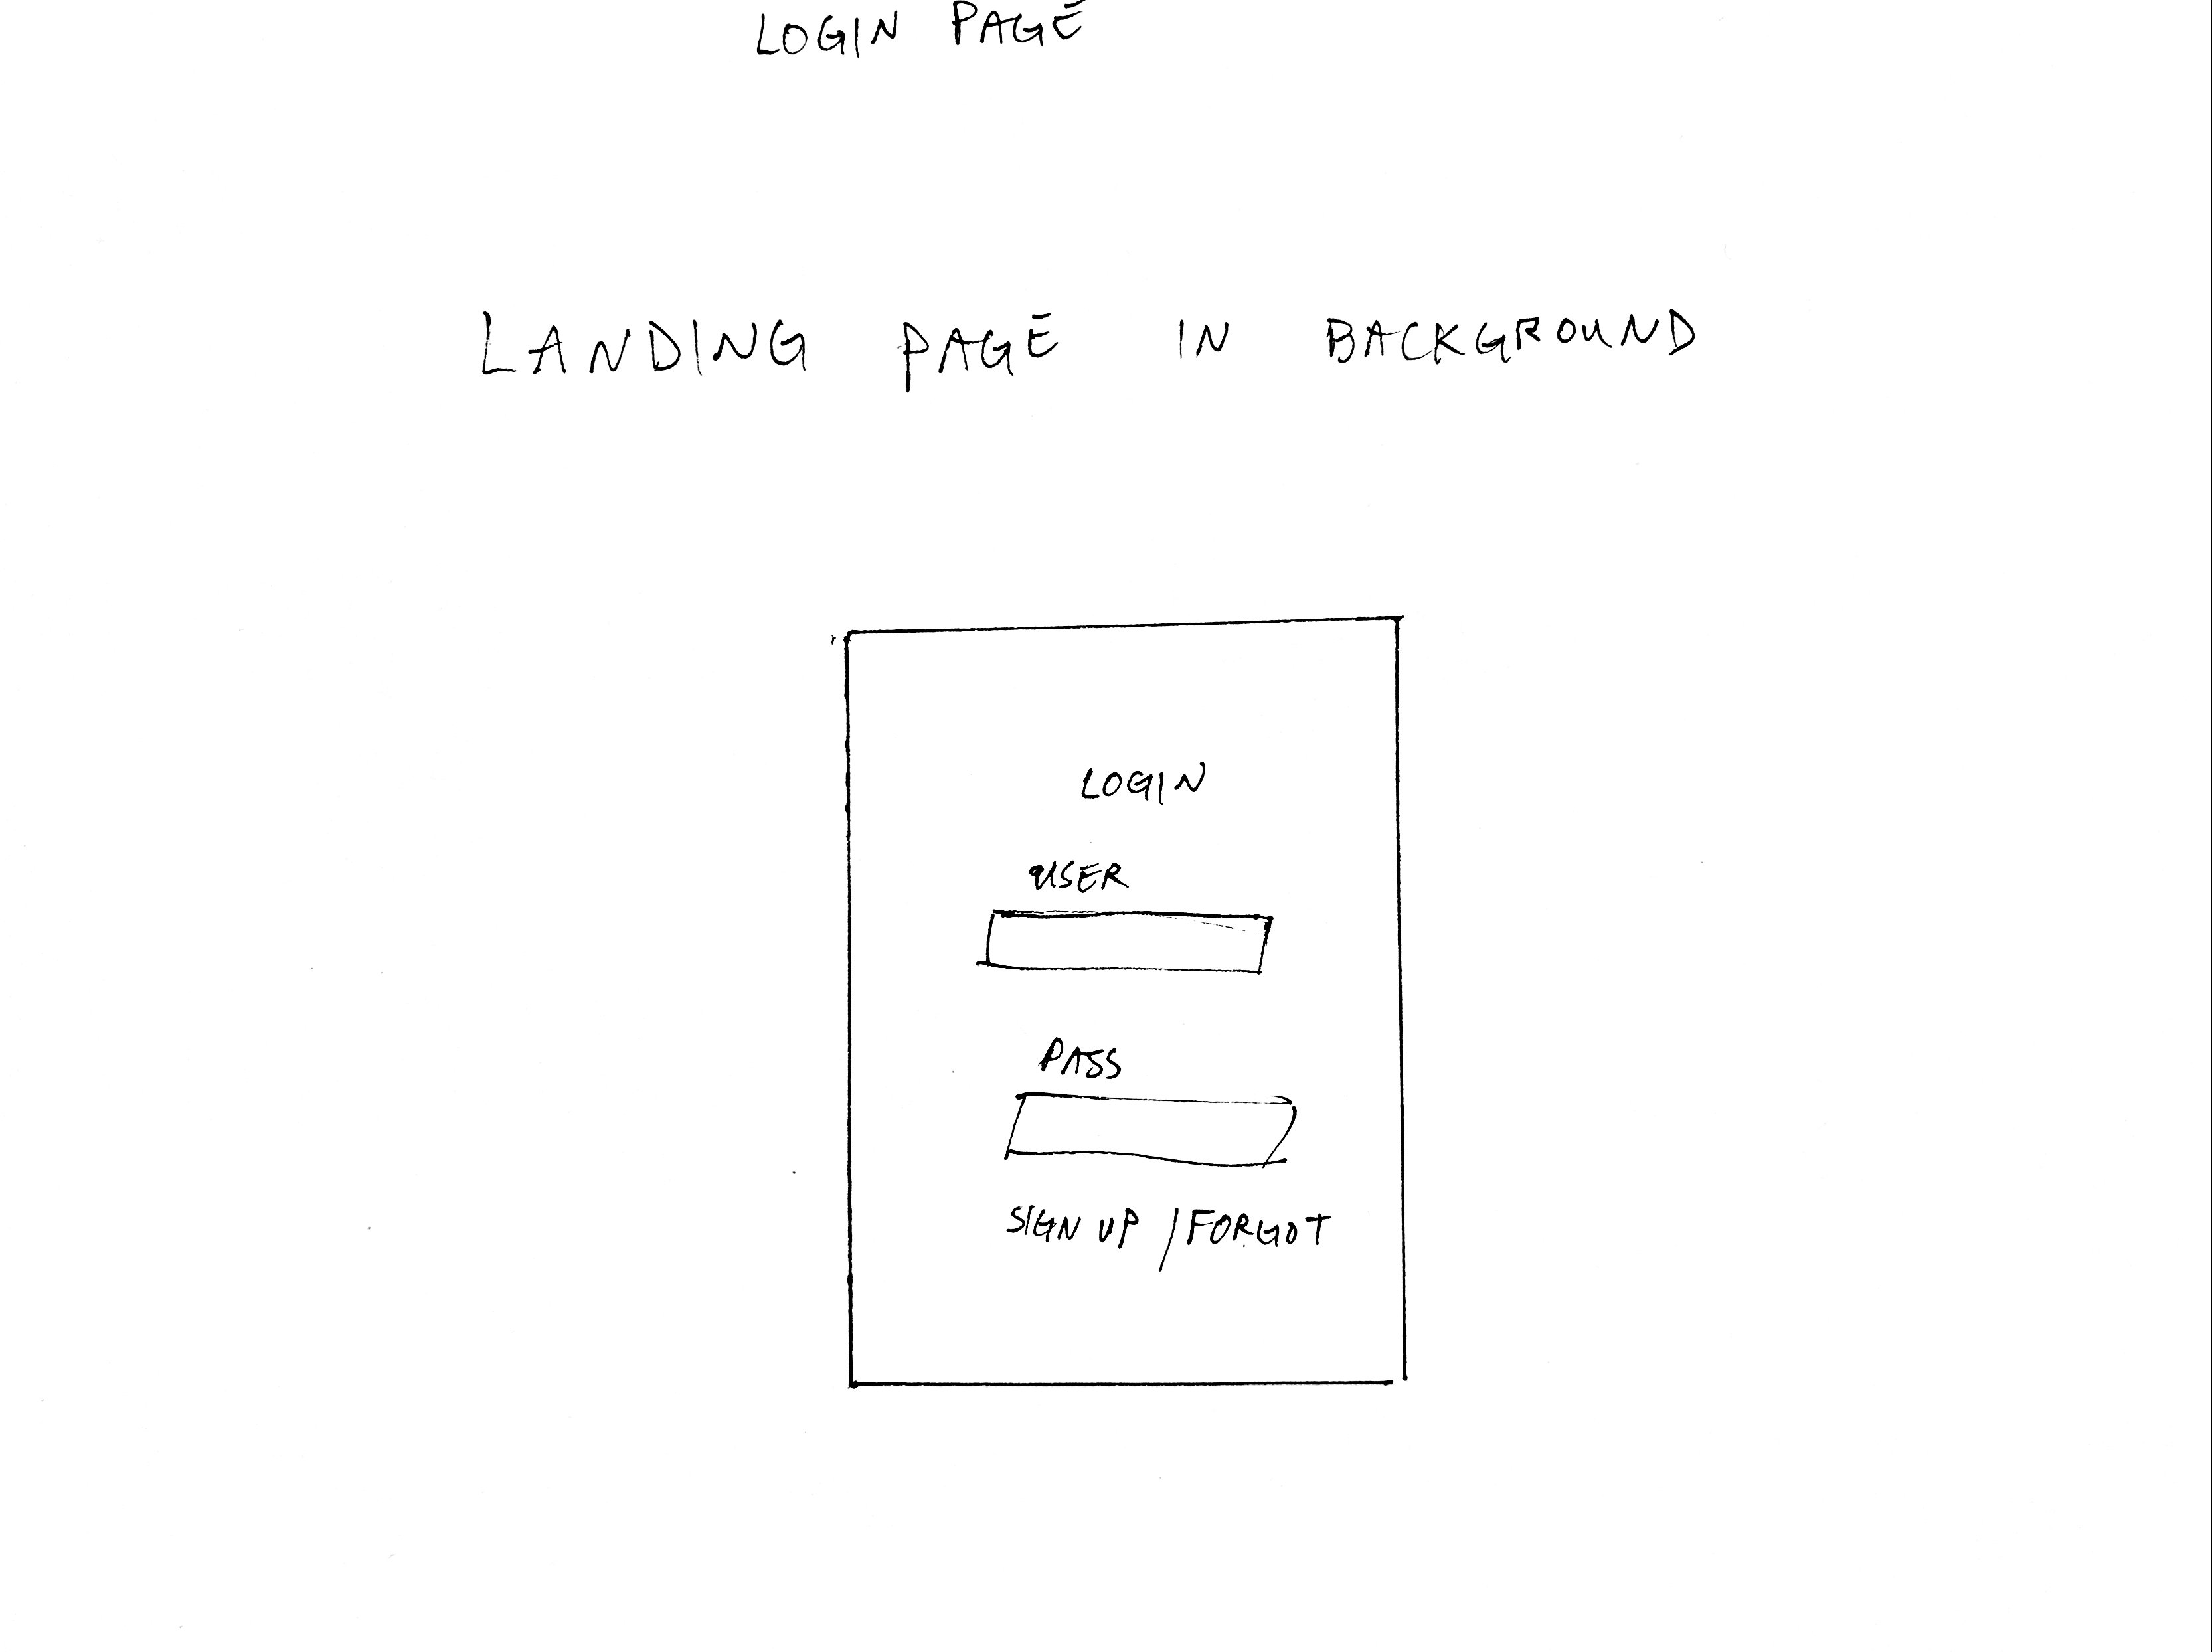 LOGIN PAGE
LANDING PAGE IN BACKGROUND
LOGIN
USER
PASS
SIGN UP / FORGOT